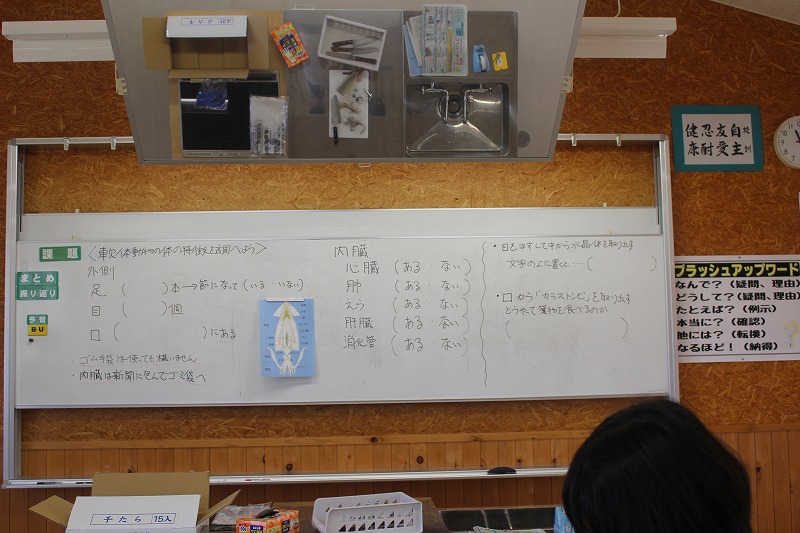 するめ 10入
健忍友自
康耐愛主
校訓
課題
〈軟体動物の体の特徴を調べよう〉
まとめ
振り返り
予習
BU
外側
足 ( )本→節になって(いる いない)
目 ( )個
口 ( )にある
・ゴム手袋は使っても構いません
・内臓は新聞に包んでゴミ袋へ
内臓
心臓 (ある ない)
肺 (ある ない)
えら (ある ない)
肝臓 (ある ない)
消化管 (ある ない)
・目をはずして中から水晶体を取り出す
文字の上に置くと‥‥( )
・口から「カラストンビ」を取り出す
どうやって獲物を食べるのか
( )
ブラッシュアップワード
なんで？(疑問、理由)
どうして？(疑問、理由)
たとえば？(例示)
本当に？(確認)
他には？(転換)
なるほど！(納得)
干たら 15入